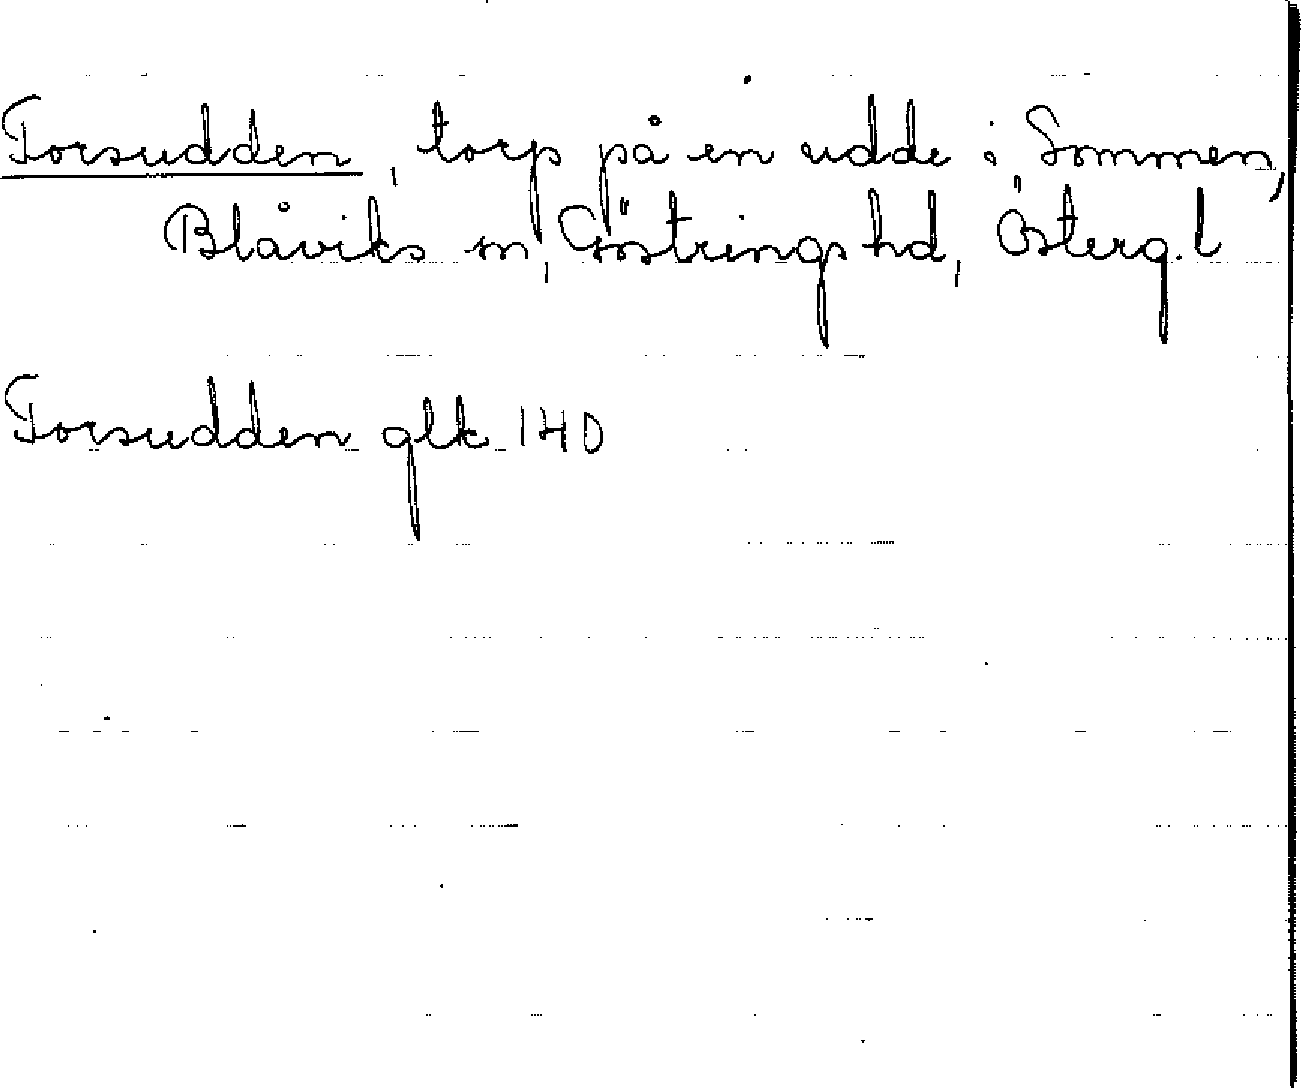 Forsudden, torp på en udde i Sommen,
Blåviks sn, Göstrings hd, Österg. l
Forsudden glk 14D